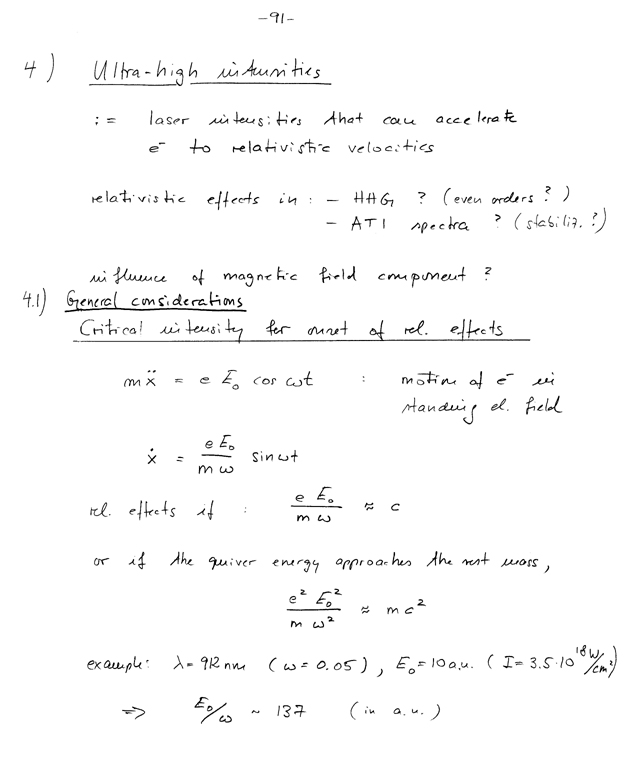 -91-
4) Ultra-high intensities
:= laser intensities that can accelerate
e⁻ to relativistic velocities
relativistic effects in : - HHG ? (even orders ?)
- ATI spectra ? (stabiliz. ?)
influence of magnetic field component ?
4.1) General considerations
Critical intensity for onset of rel. effects
mẍ = e E₀ cos ωt : motion of e⁻ in
standing el. field
ẋ = e E₀ / m ω sin ωt
rel. effects if : e E₀ / m ω ≈ c
or if the quiver energy approaches the rest mass,
e² E₀² / m ω² ≈ mc²
example: λ = 912 nm (ω = 0.05), E₀ = 10 a.u. (I = 3.5·10¹⁸ W/cm²)
⇒ E₀/ω ~ 137 (in a.u.)